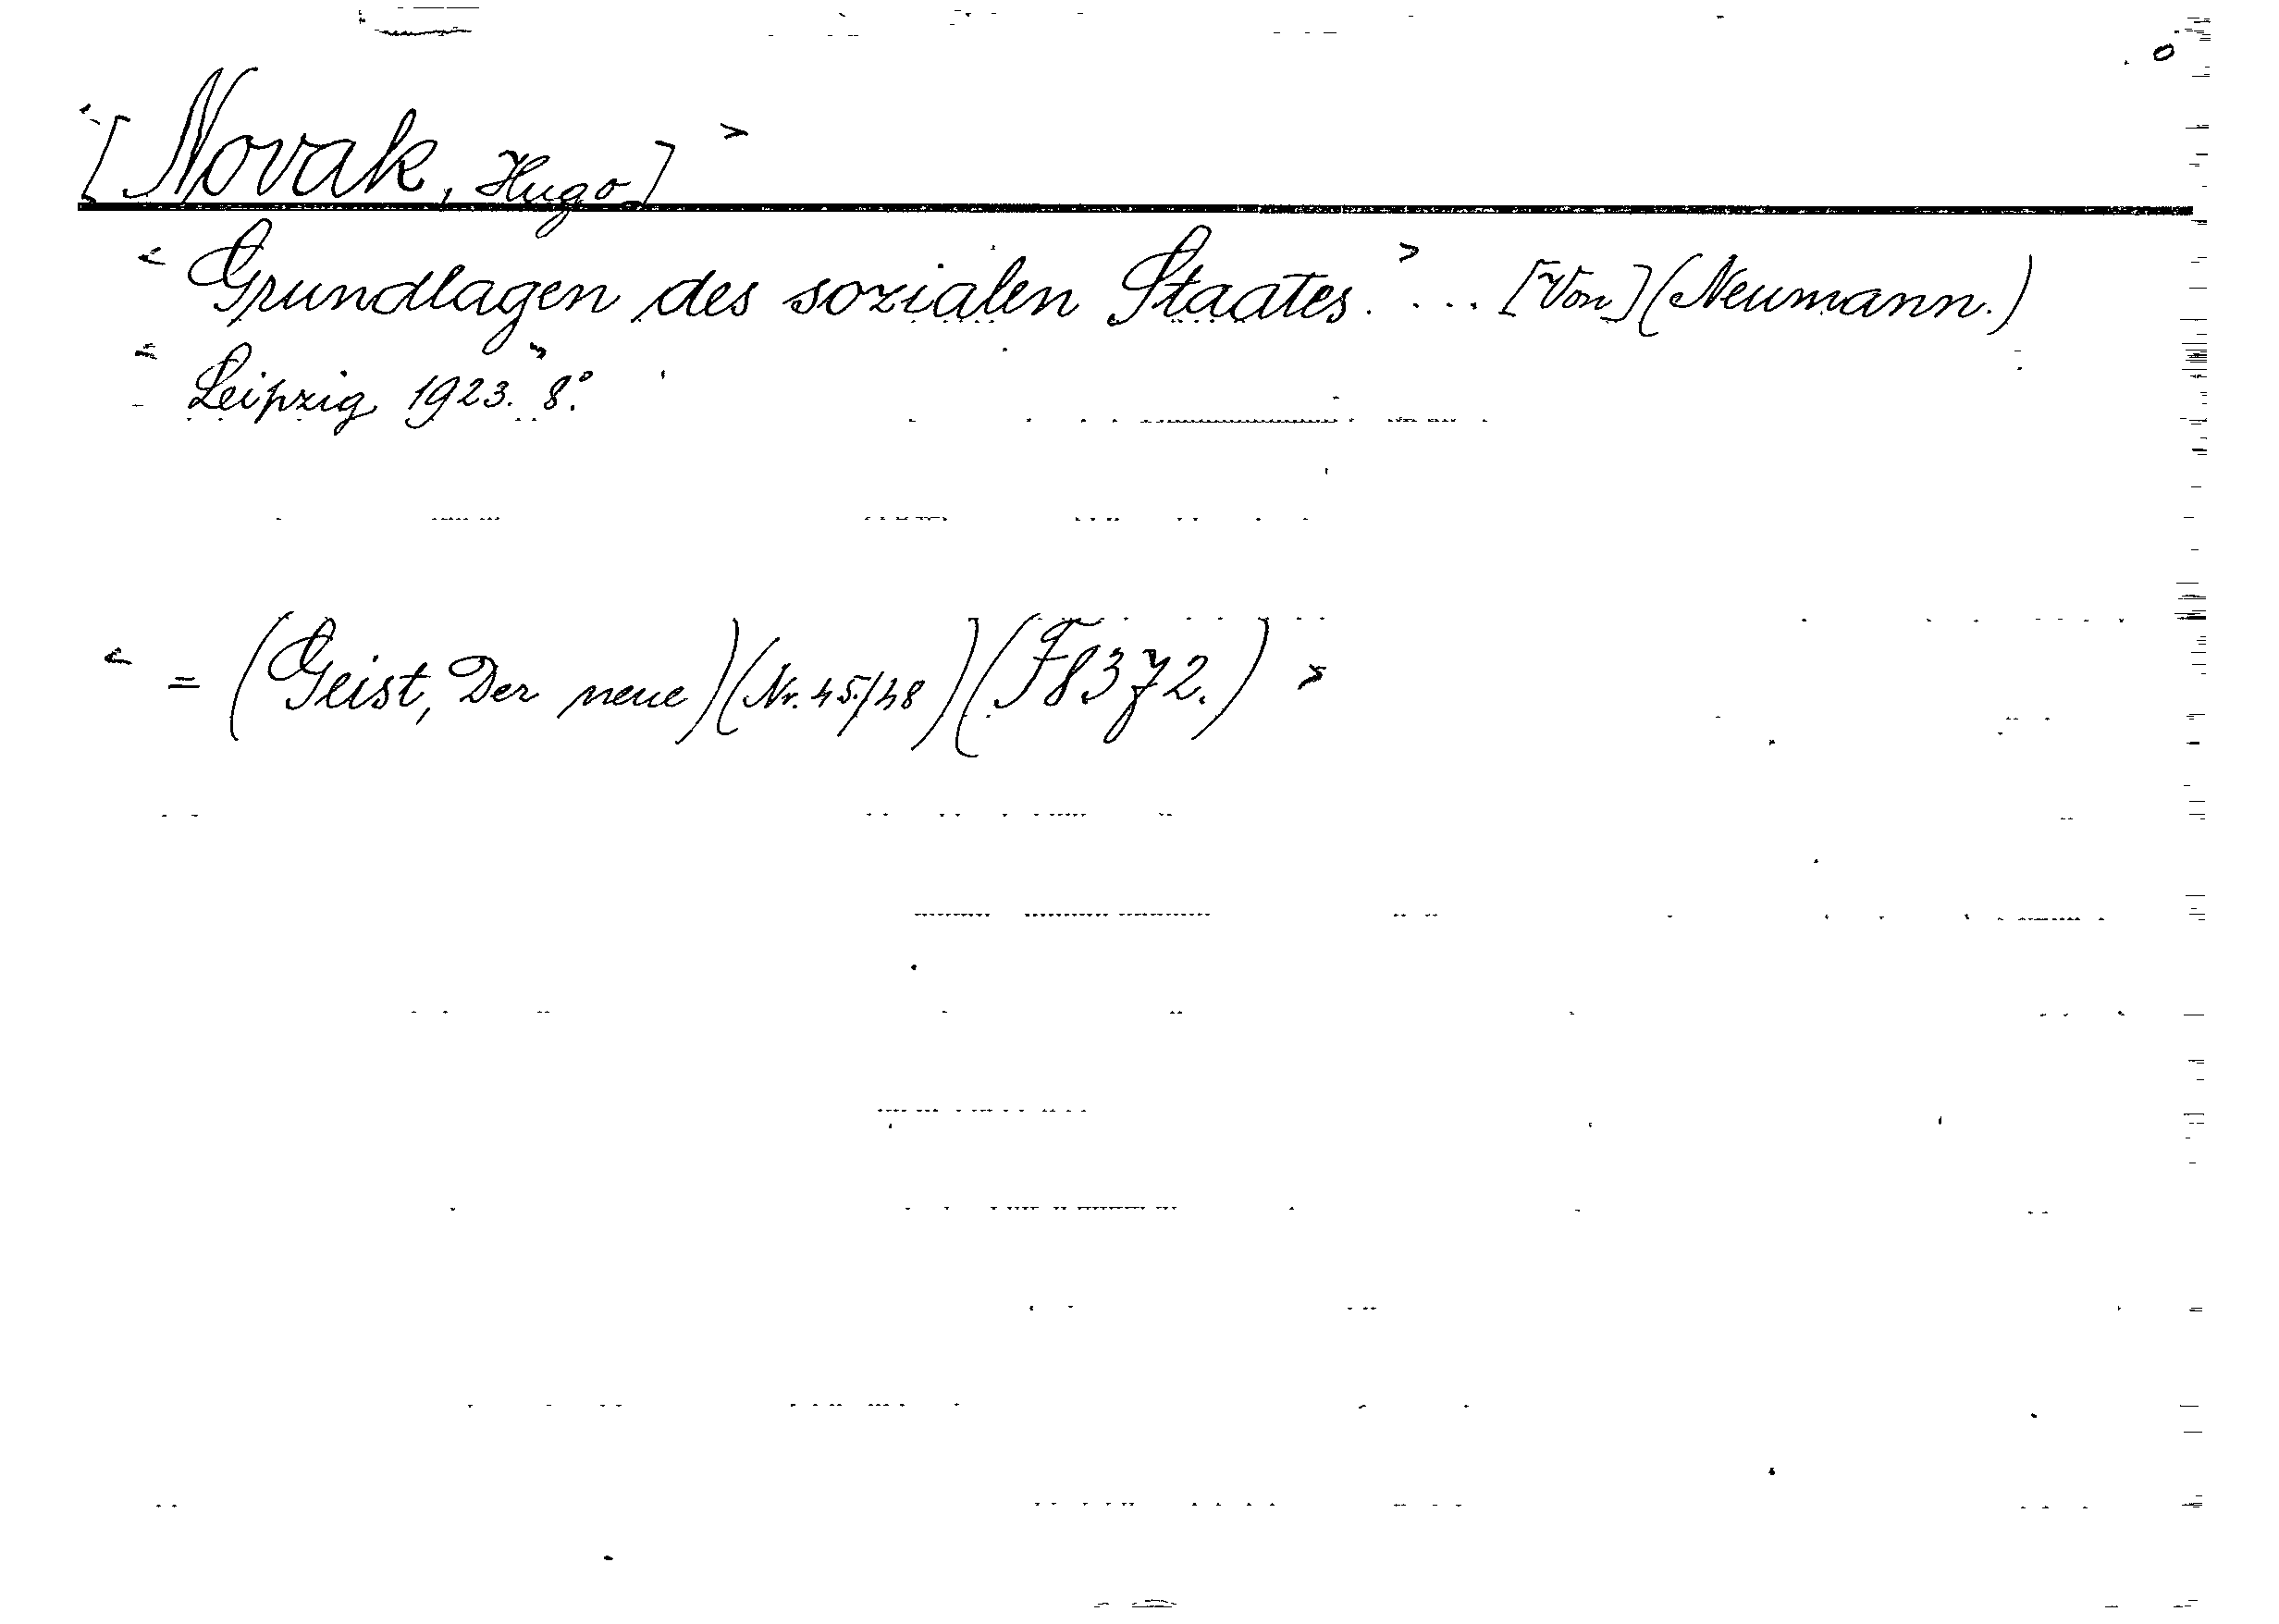 <[Novak, Hugo]>
<Grundlagen des sozialen Staates.> ... [Von] (Neumann.)
<Leipzig 1923.> 8°.
< = (Geist, Der neue) (Nr. 45/48) (F8372.) >